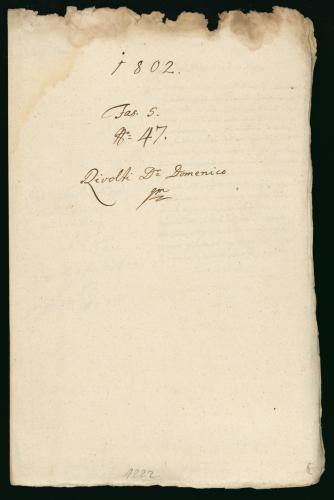 1802.
Fas. 5.
N.º 47.
Rivolti Dr. Domenico
qm